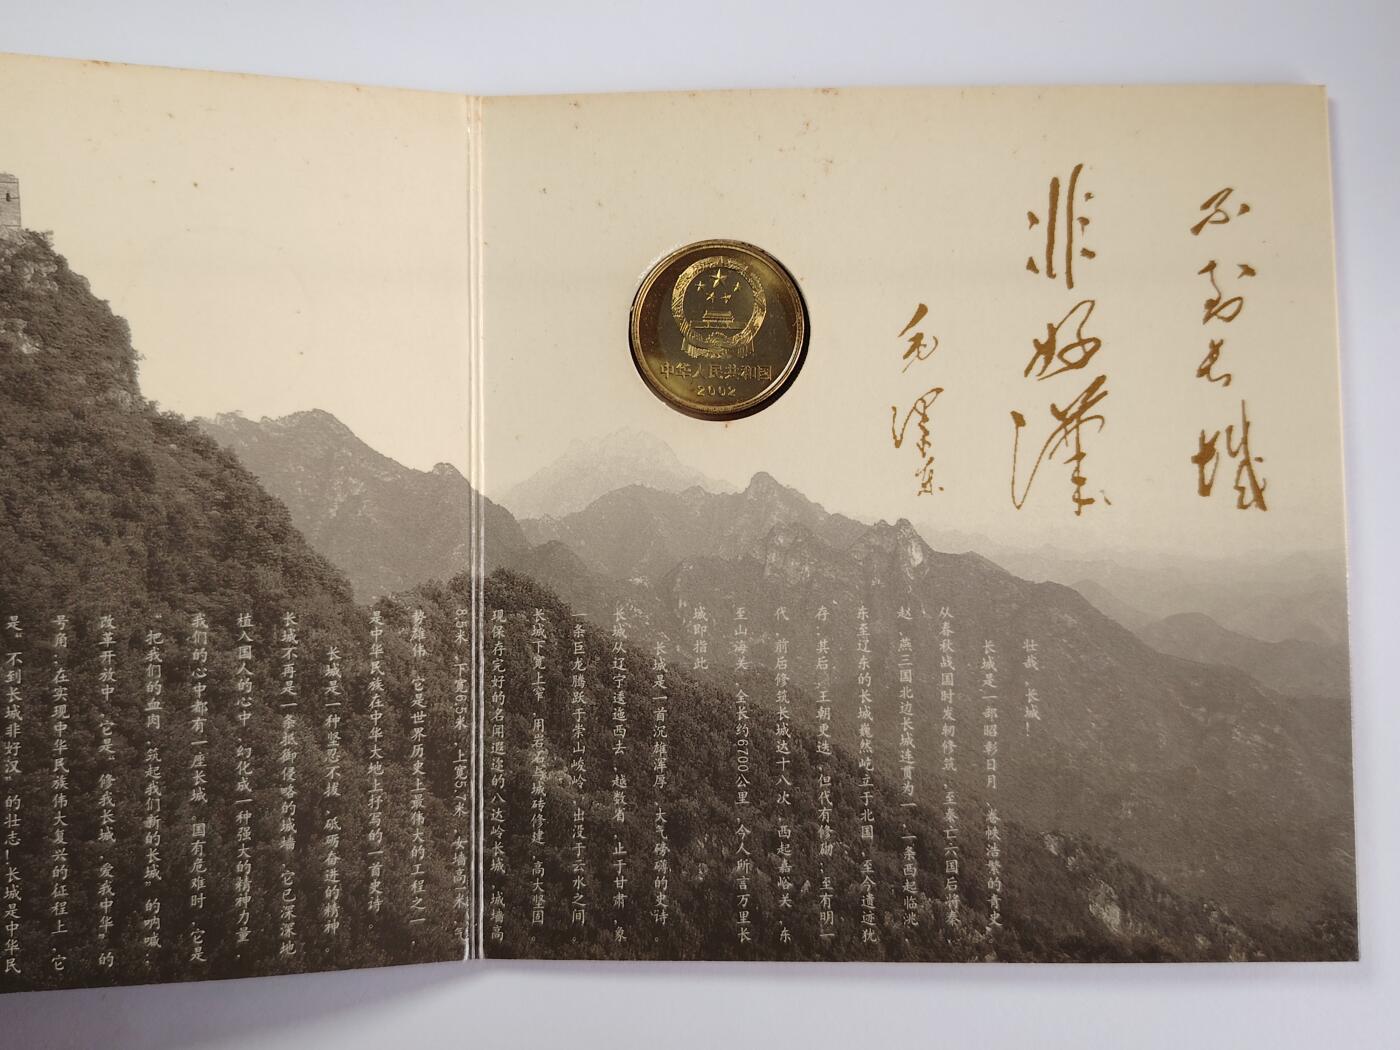 不到长城
非好汉
毛泽东
中华人民共和国
2002
壮哉，长城！
长城是一部昭彰日月、卷帙浩繁的青史。
从春秋战国时发轫修筑，至秦亡六国后将秦、
赵、燕三国北边长城连贯为一，一条西起临洮，
东至辽东的长城巍然屹立于北国，至今遗迹犹
存；其后，王朝更迭，但代有修砌；至有明一
代，前后修筑长城达十八次，西起嘉峪关，东
至山海关，全长约6700公里，今人所言万里长
城即指此。
长城是一首沉雄浑厚、大气磅礴的史诗。
长城从辽宁逶迤西去，越数省，止于甘肃，象
一条巨龙腾跃于崇山峻岭，出没于云水之间。
长城下宽上窄，用岩石与城砖修建，高大坚固。
现保存完好的名闻遐迩的八达岭长城，城墙高
8.5米，下宽6.5米，上宽5.7米，女墙高一米，气
势雄伟。它是世界历史上最伟大的工程之一，
是中华民族在中华大地上抒写的一首史诗。
长城是一种坚忍不拔、砥砺奋进的精神。
长城不再是一条抵御侵略的城墙，它已深深地
植入国人的心中，幻化成一种强大的精神力量，
我们的心中都有一座长城。国有危难时，它是
“把我们的血肉，筑起我们新的长城”的呐喊；
改革开放中，它是“修我长城，爱我中华”的
号角；在实现中华民族伟大复兴的征程上，它
是“不到长城非好汉”的壮志！长城是中华民